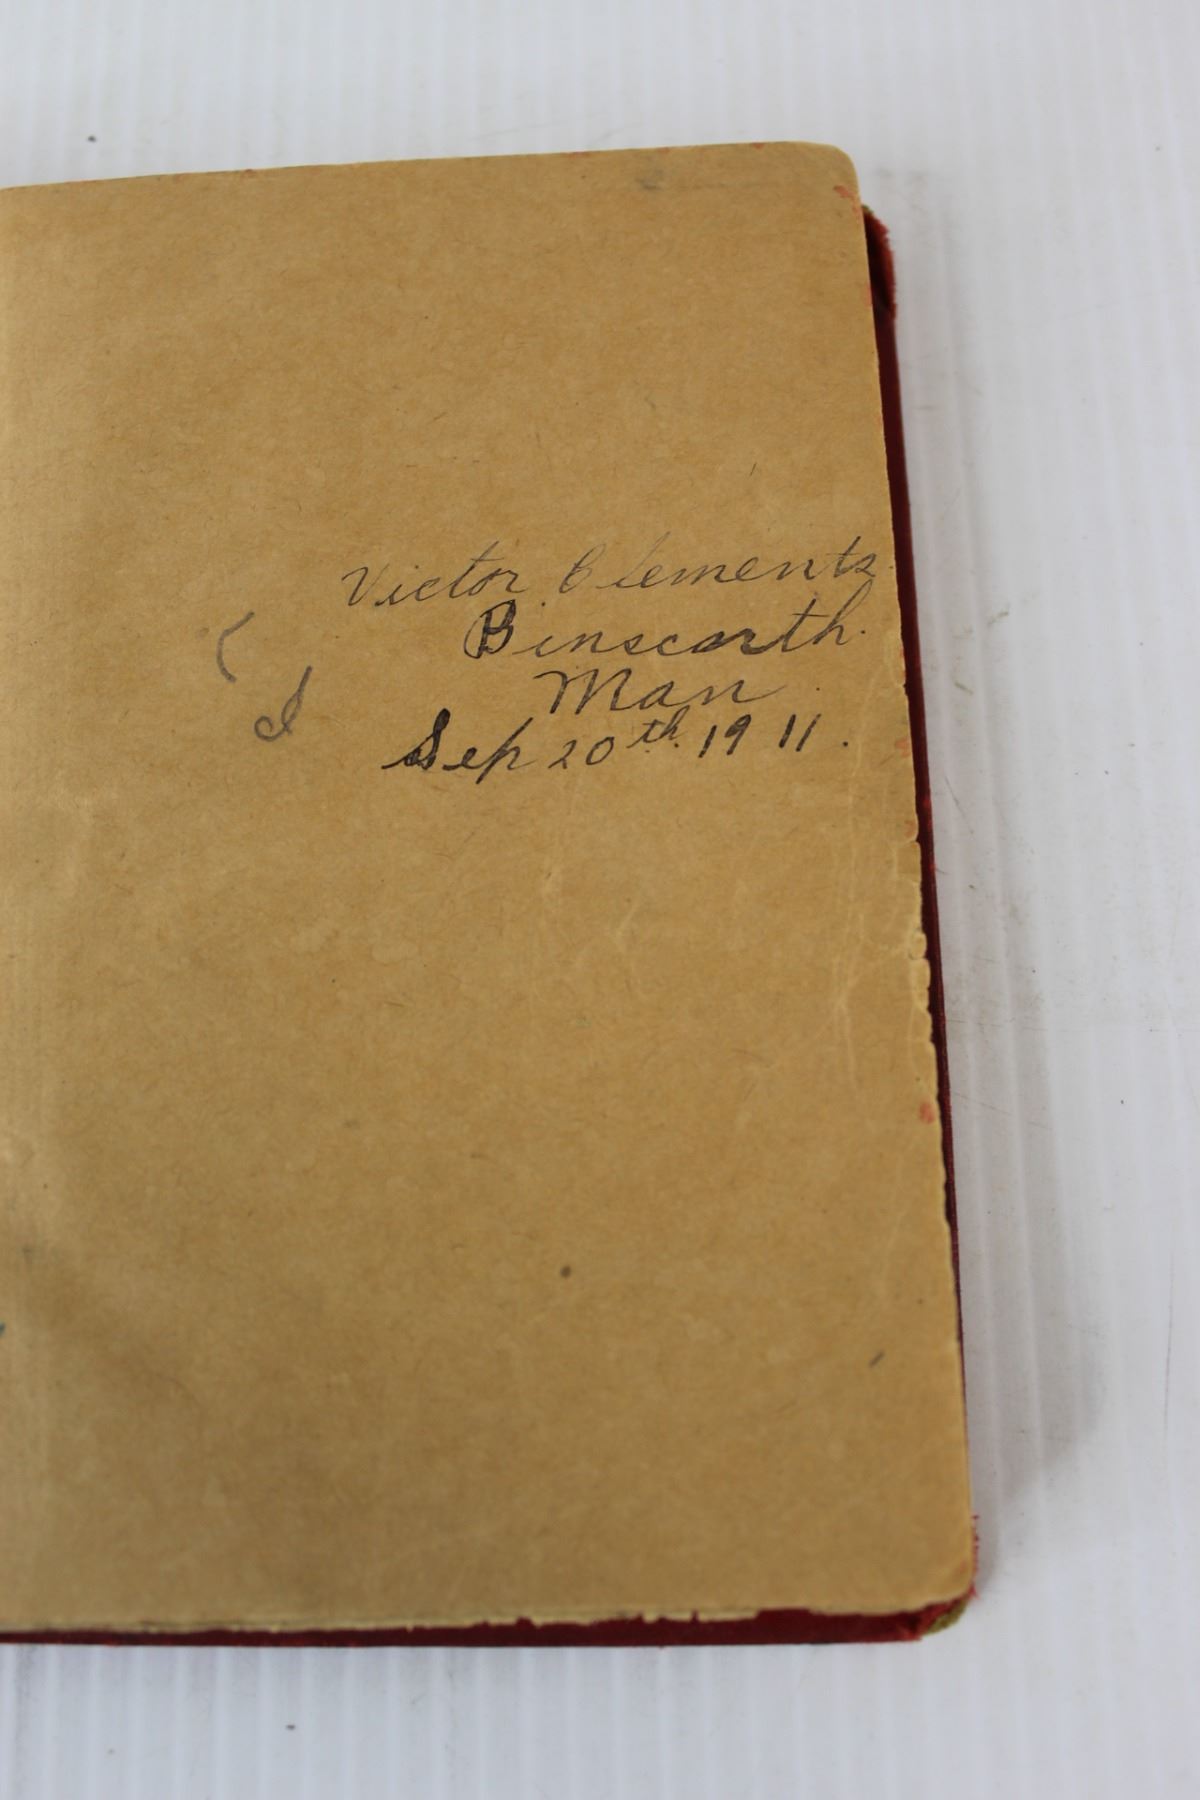 Victor Clements
Binscarth.
Man
Sep 20th. 19 11.